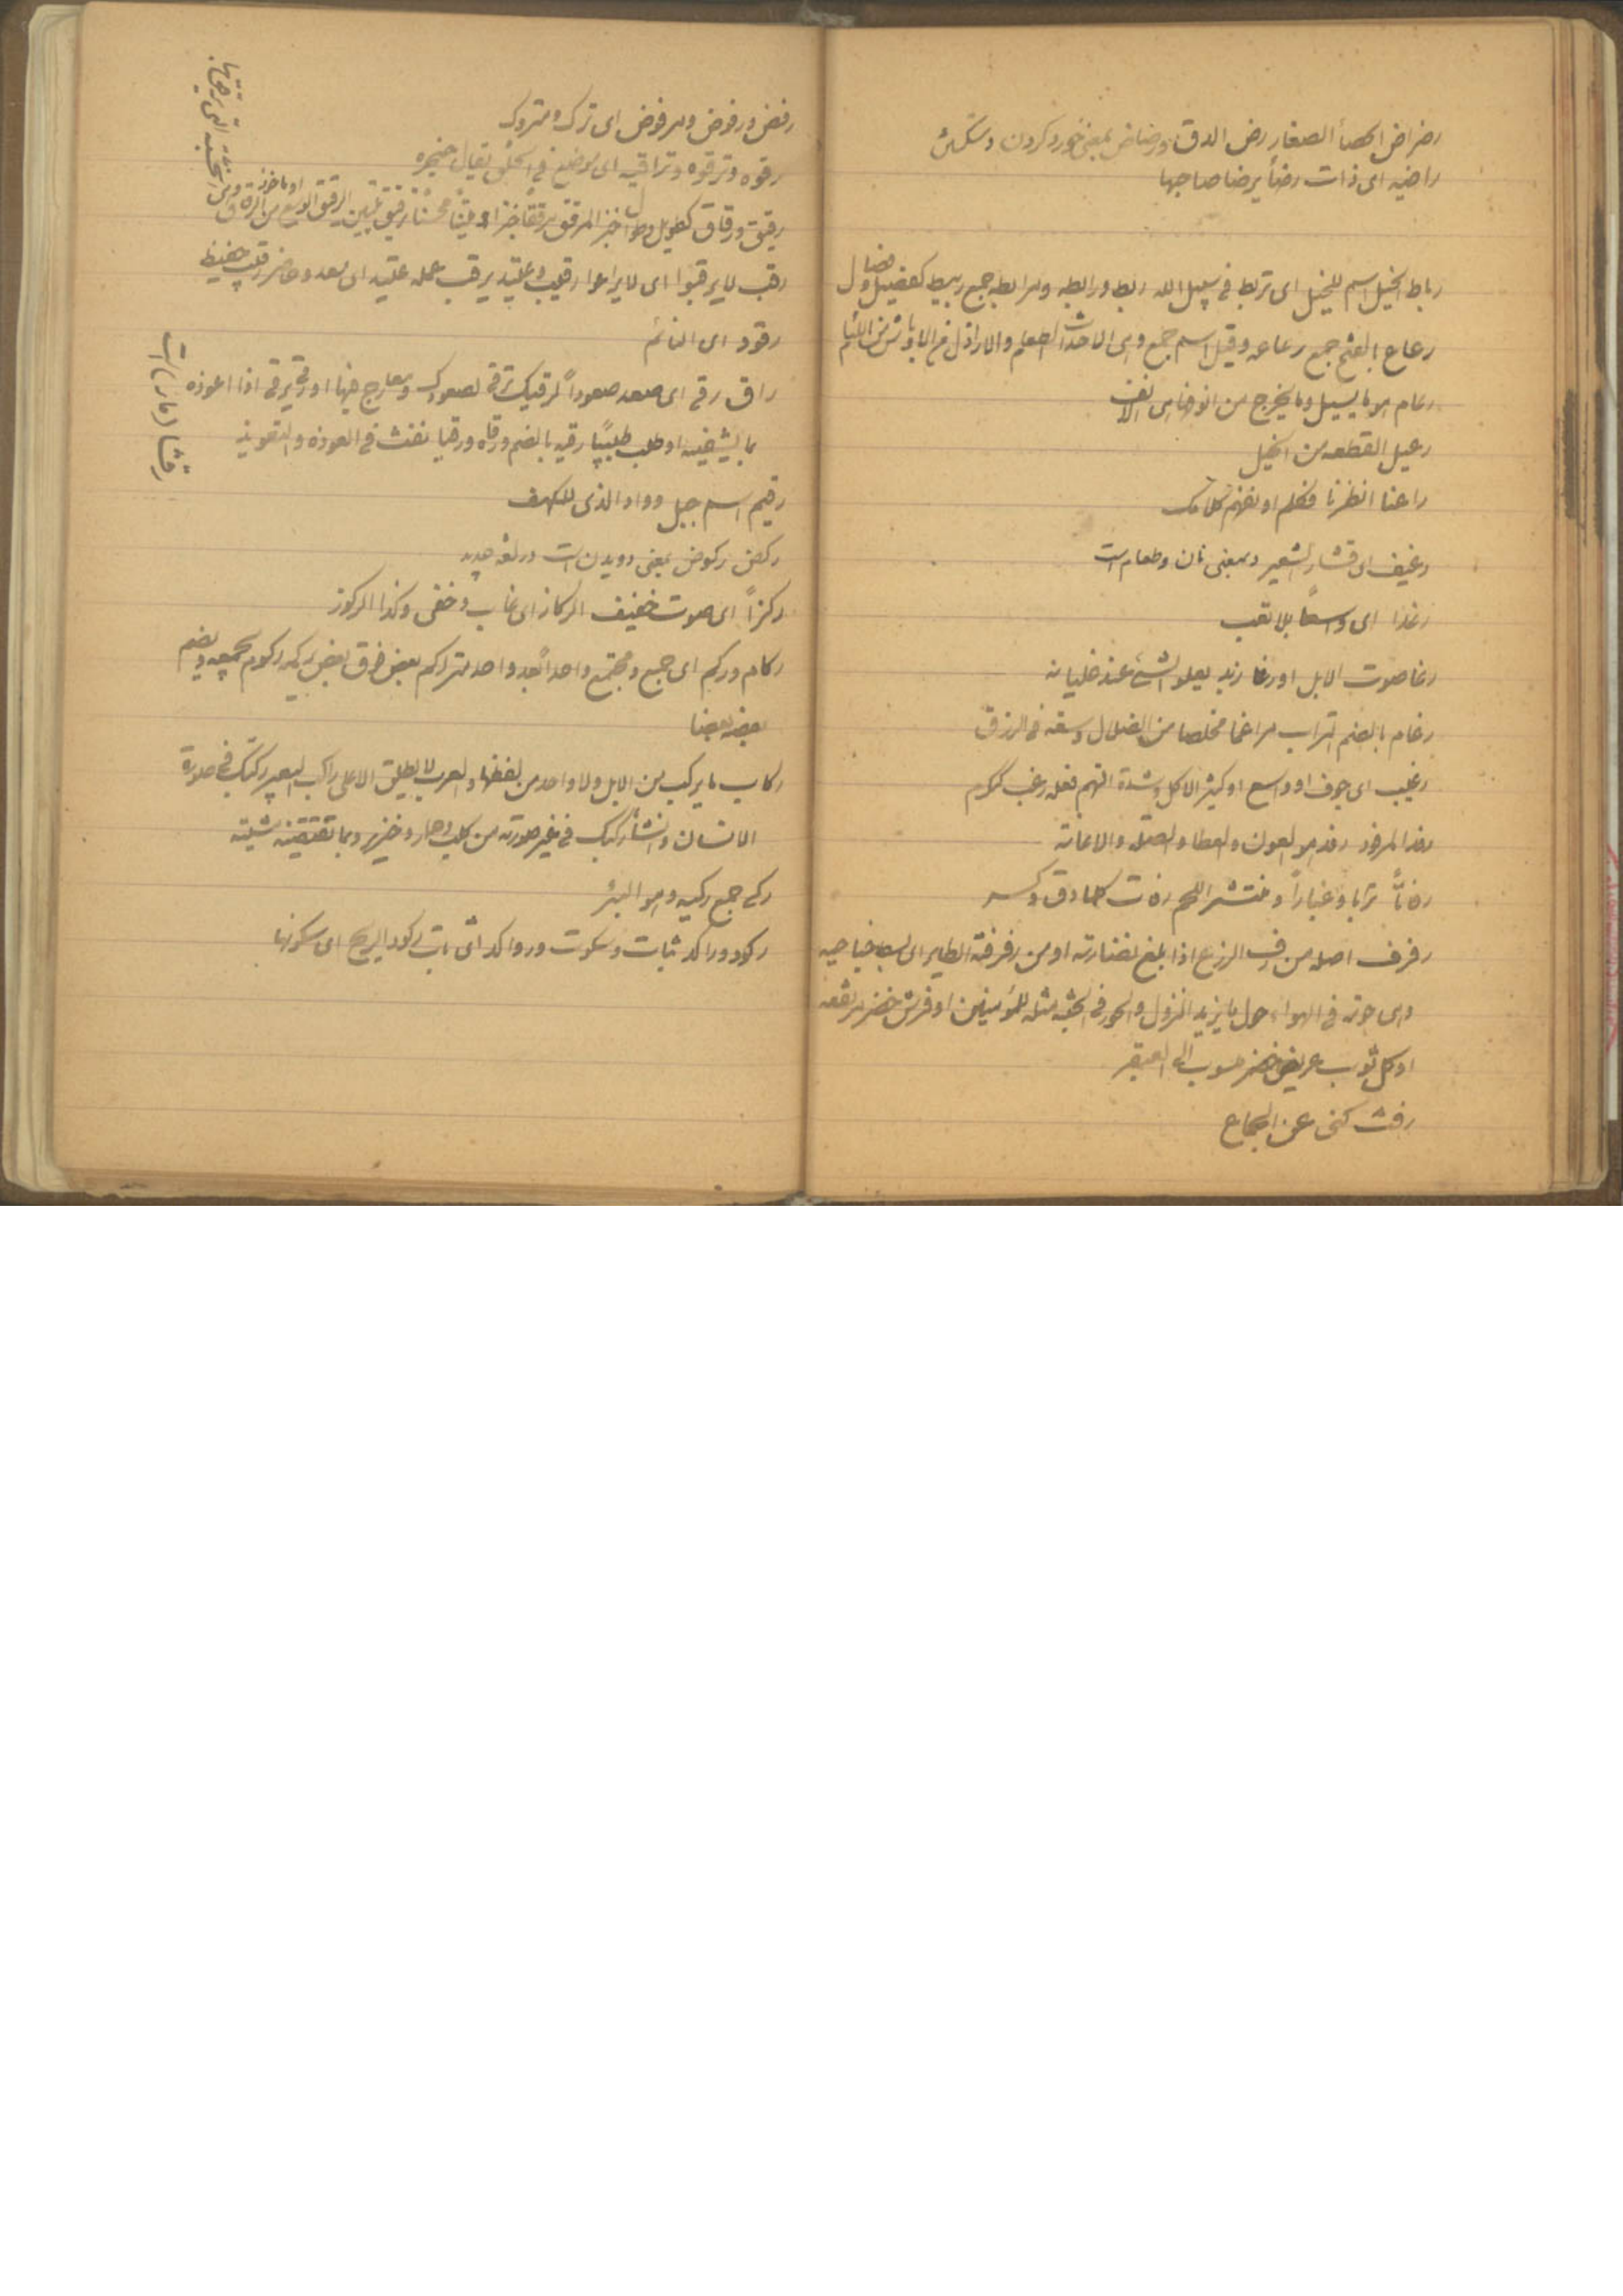 رضراض الحصأ الصغار رض الدق ورضاض بمعنی خورد کردن و شکستن
راضیه ای ذات رضأ یرضا صاحبها
رباط الخیل اسم للخیل ای تربط فی سبیل الله ربط ورابطه ومرابطه جمع ربیط کفصیل وفصال
رعاع بالفتح جمع رعاعه وقیل اسم جمع وهی الاحداث الطعام والاراذل من الاوباش من اللئام
رعام هو ما یسیل وما یخرج من الانف
رعیل القطعه من الخیل
راعنا انظرنا فتکلم او نفهم کلامک
رغیف ای قشار الشعیر وبمعنی نان وطعام است
رغدا ای واسعاً بلا تعب
رغا صوت الابل او رغا زبد یعلو الشئ عند غلیانه
رغام بالضم التراب مراغما مخلصا من الضلال وسعه فی الرزق
رغیب ای جوف او واسع او کثیر الاکل وشدة النهم فعله رغب ککرم
رفد المرفود رفد هو العون والعطا والصله والاعانة
رفاتاً ترابا وغباراً ومنتشر اللحم رفات کما دق وکسر
رفرف اصله من رف الزرع اذا بلغ نضارته او من رفرفة الطایر ای بسط جناحیه
فی الهواء حول ما یرید النزول والحور فی الجنه مثله للمؤمنین او فرش خضر مرتفعه
او کل ثوب عریض خضر منسوب الی العبقر
رفث کنی عن الجماع
رفض ورفوض ومرفوض ای ترک ومتروک
رقوه وترقوه وتراقیه ای موضع فی الحلق یقال حنجره
رقیق ورقاق کطویل وطوال خبز المرقق مرققاً خبزا لیناً محسناً رقیق تلیین الرقق الواسع من الرقاق
رقب لا یرقبوا ای لا یراعوا رقیب وعتید یرقب عمله عتید ای معد وحاضر رقیب حفیظ
رقود ای النائم
راق رقی ای صعد صعوداً لرقیک ترقی لصعودک ومعارج فیها او رقی یرقی اذا اعوذه
بما یشفیه او طلب طبیبا رقیه بالضم ورقاه ورقیا نفث فی العوذه والتعویذ
رقیم اسم جبل وواد الذی للکهف
رکض رکوض بمعنی دویدن است در لغه جدید
رکزاً ای صوت خفیف الرکاز ای غاب وخفی وکذا المرکوز
رکام ورکم ای جمع ومجتمع واحداً بعد واحد متراکم بعض فوق بعض یرکمه رکوم یجمعه ویضم
بعضه بعضا
رکاب ما یرکب من الابل ولا واحد من لفظها والعرب لا یطلق الا علی راکب البعیر رکبک فی صورة
الانسان وانشأ رکبک فی غیر صورته من کلب وحمار وخنزیر وبما تقتضیه مشیته
رکی جمع رکیه وهو البئر
رکود وراکد ثبات وسکوت ورواکد ای ثابت رکود الریح ای سکونها